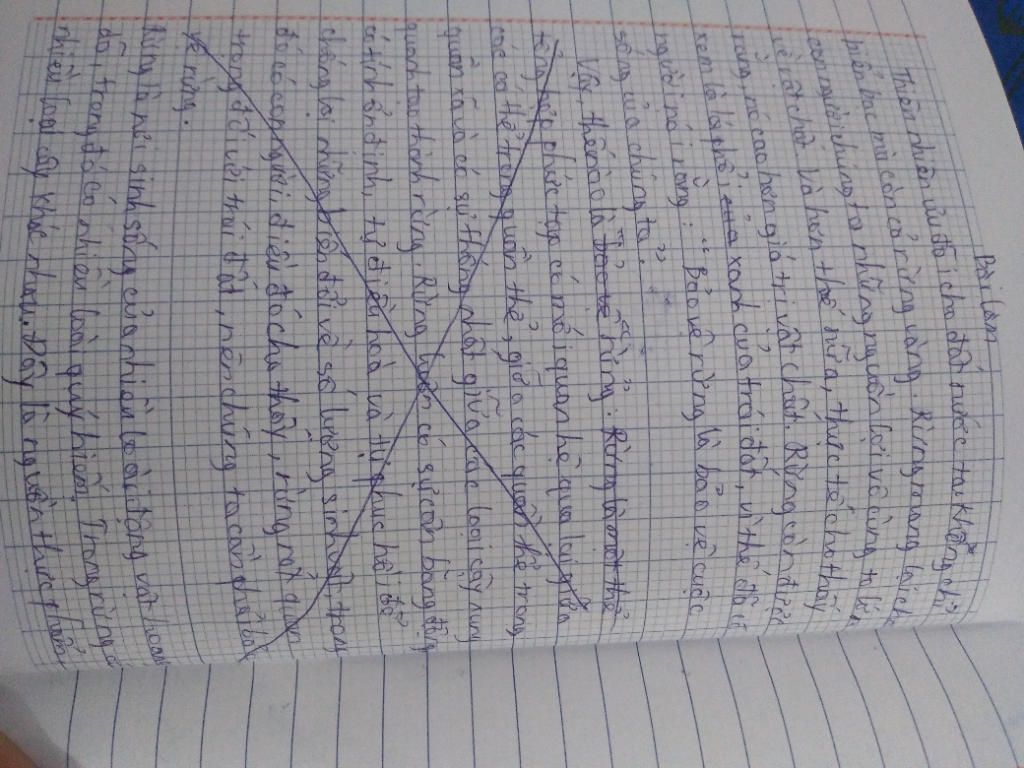 Bài làm
Thiên nhiên ưu đãi cho đất nước ta không chỉ
biển bạc mà còn cả rừng vàng. Rừng mang lại cho
con người chúng ta những nguồn lợi vô cùng to lớn
về vật chất. Và hơn thế nữa, thực tế cho thấy
rằng, nó cao hơn giá trị vật chất. Rừng còn được
xem là lá phổi của xanh của trái đất, vì thế đã có
người nói rằng: "Bảo vệ rừng là bảo vệ cuộc
sống của chúng ta".
Vậy, thế nào là bảo vệ "rừng": Rừng là một thể
tổng hợp phức tạp có mối quan hệ qua lại giữa
các cá thể trong quần thể, giữa các quần thể trong
quần xã và có sự thống nhất giữa các loại cây xung
quanh tạo thành rừng. Rừng luôn có sự cân bằng động,
có tính ổn định, tự điều hoà và tự phục hồi để
chống lại những biến đổi về số lượng sinh vật, trong
đó có con người, điều đó cho thấy, rừng rất quan
trọng đối với trái đất, nên chúng ta cần phải bảo
vệ rừng.
Rừng là nơi sinh sống của nhiều loài động vật hoang
dã, trong đó có nhiều loài quý hiếm. Trong rừng có
nhiều loại cây khác nhau. Đây là nguồn thực phẩm